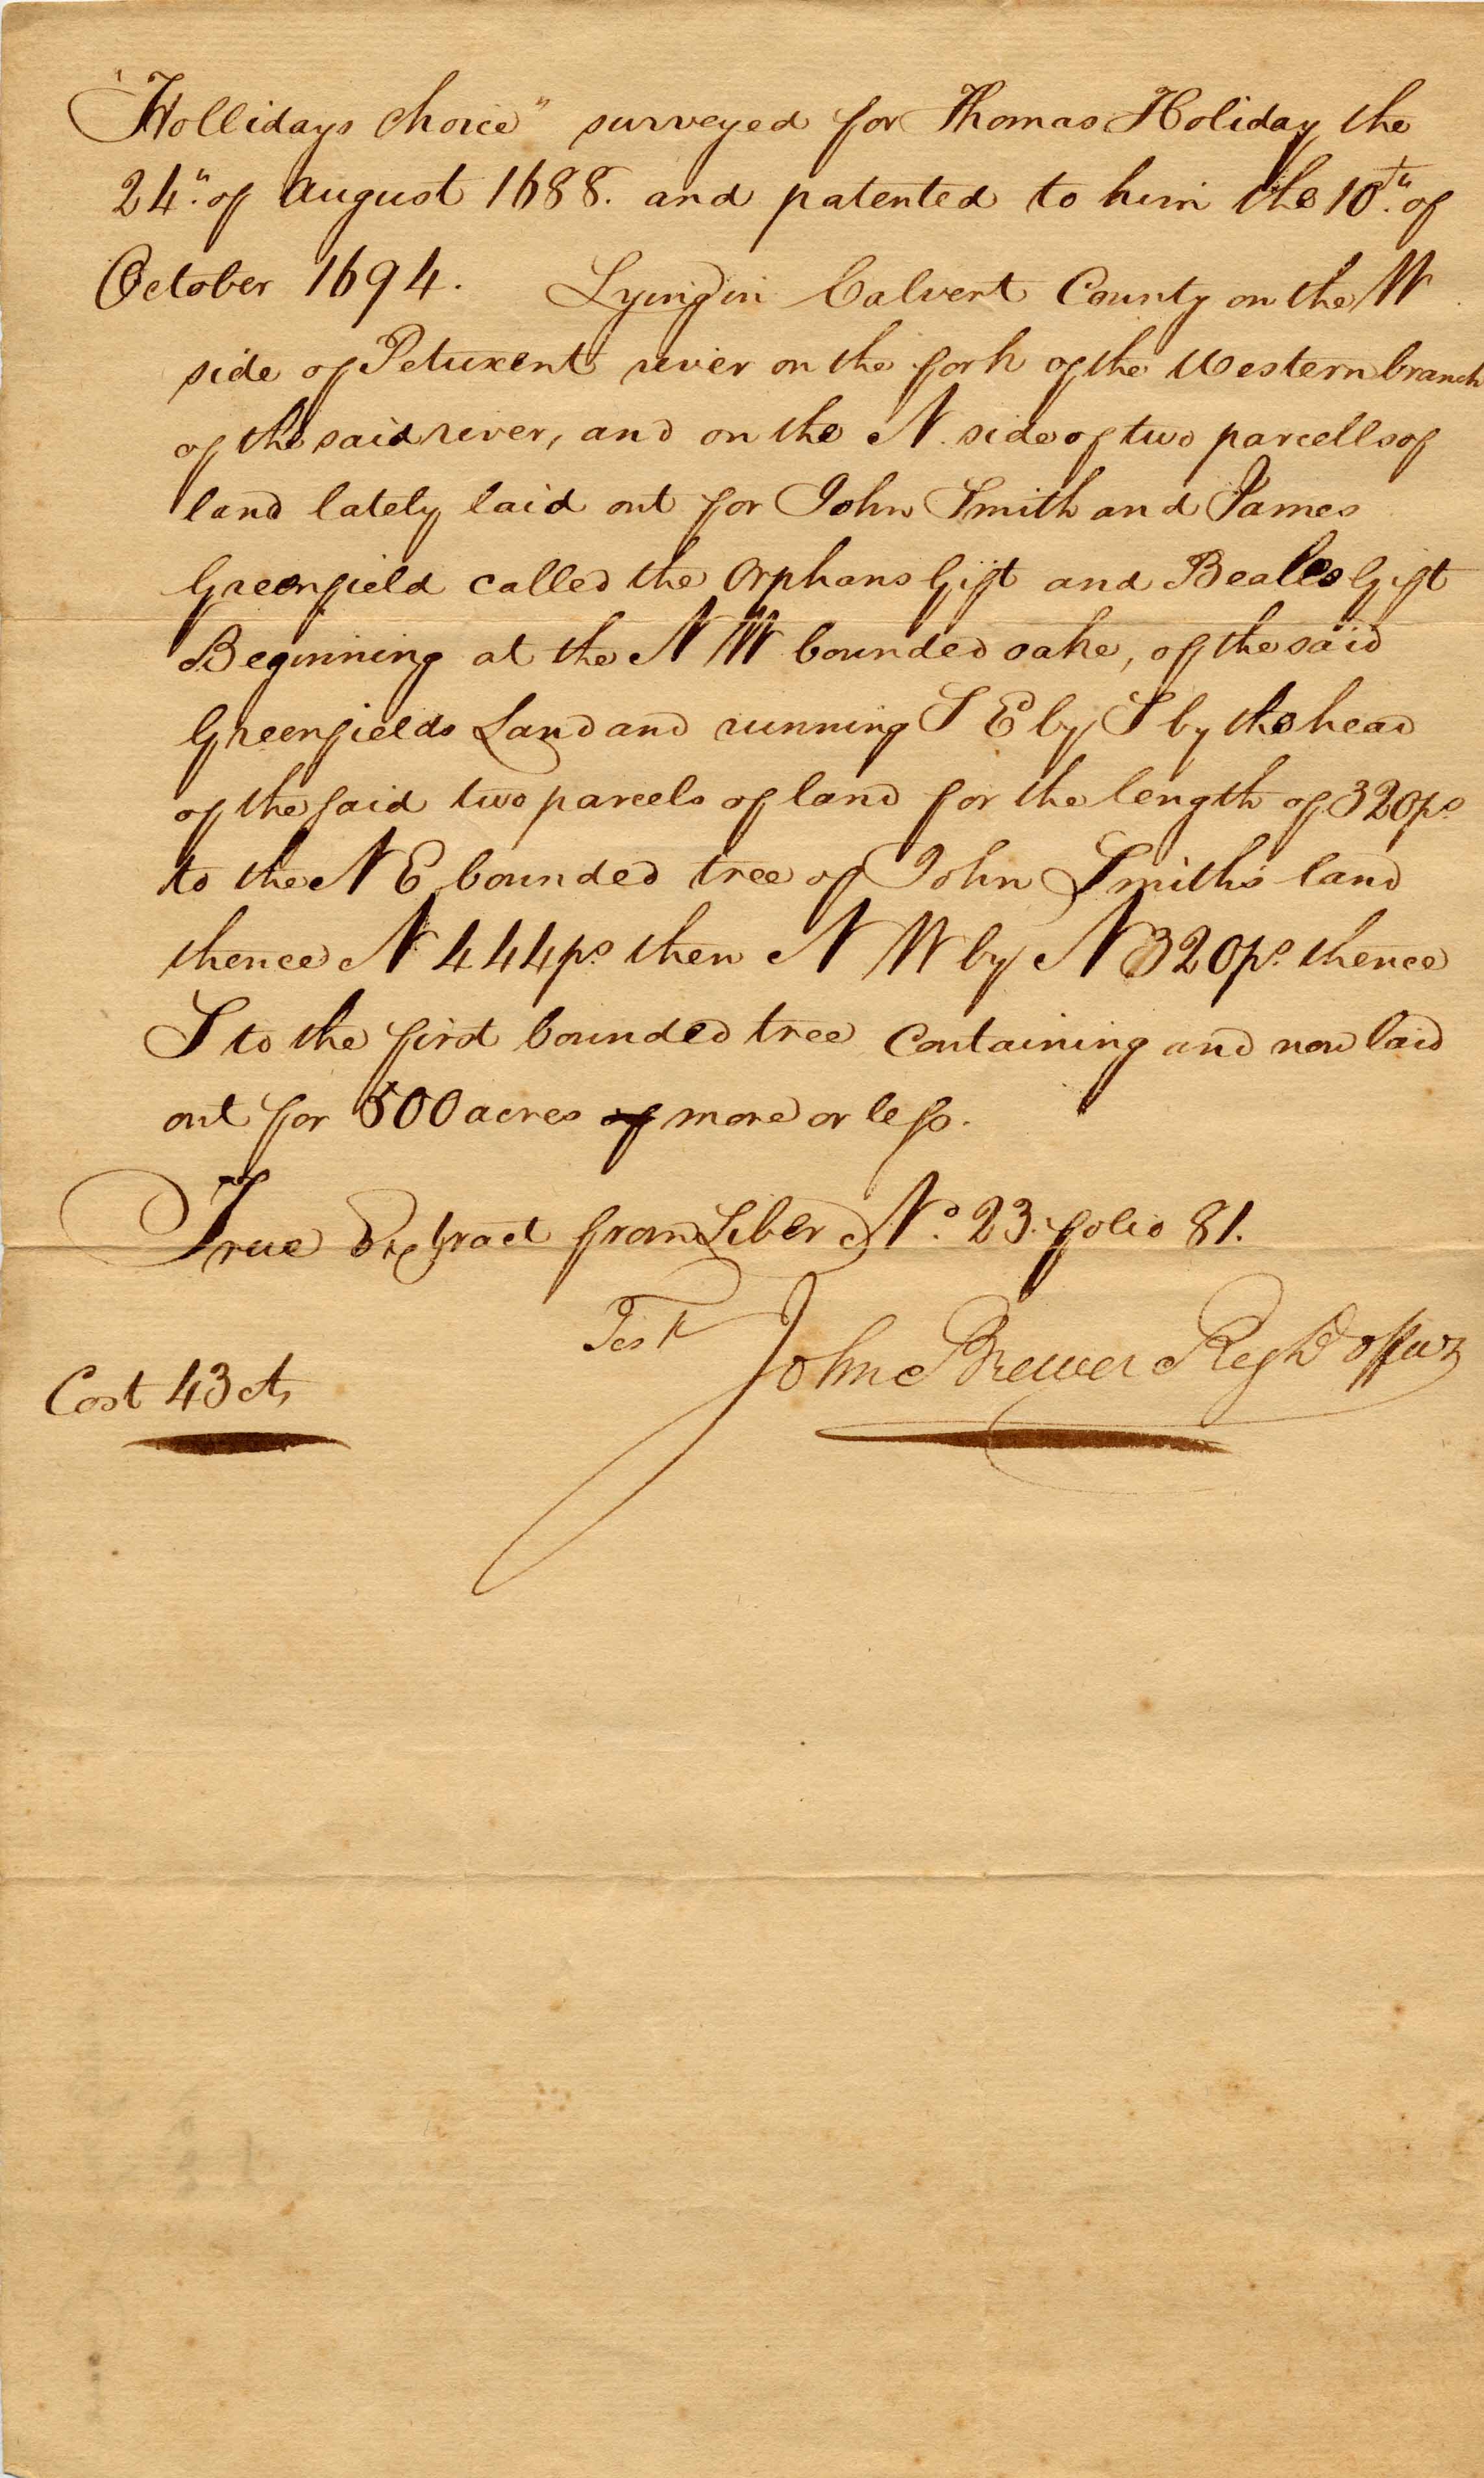 "Hollidays Choice" surveyed for Thomas Holiday the
24th. of August 1688. and patented to him the 10th. of
October 1694. Lying in Calvert County on the W
side of Petuxent river on the fork of the Western branch
of the said river, and on the N. side of two parcells of
land lately laid out for John Smith and James
Greenfield called the Orphans Gift and Bealles Gift
Beginning at the N W bounded oake, of the said
Greenfields Land and running S E by S by the head
of the said two parcels of land for the length of 320 ps
to the N E bounded tree of John Smith's land
thence N 444 ps then N W by N 320 ps. thence
S to the first bounded tree Containing and now laid
out for 500 acres of more or less.
True Extract from Liber No. 23. folio 81.
Test
John Brewer Reg Ld Off
Cost 43 cts